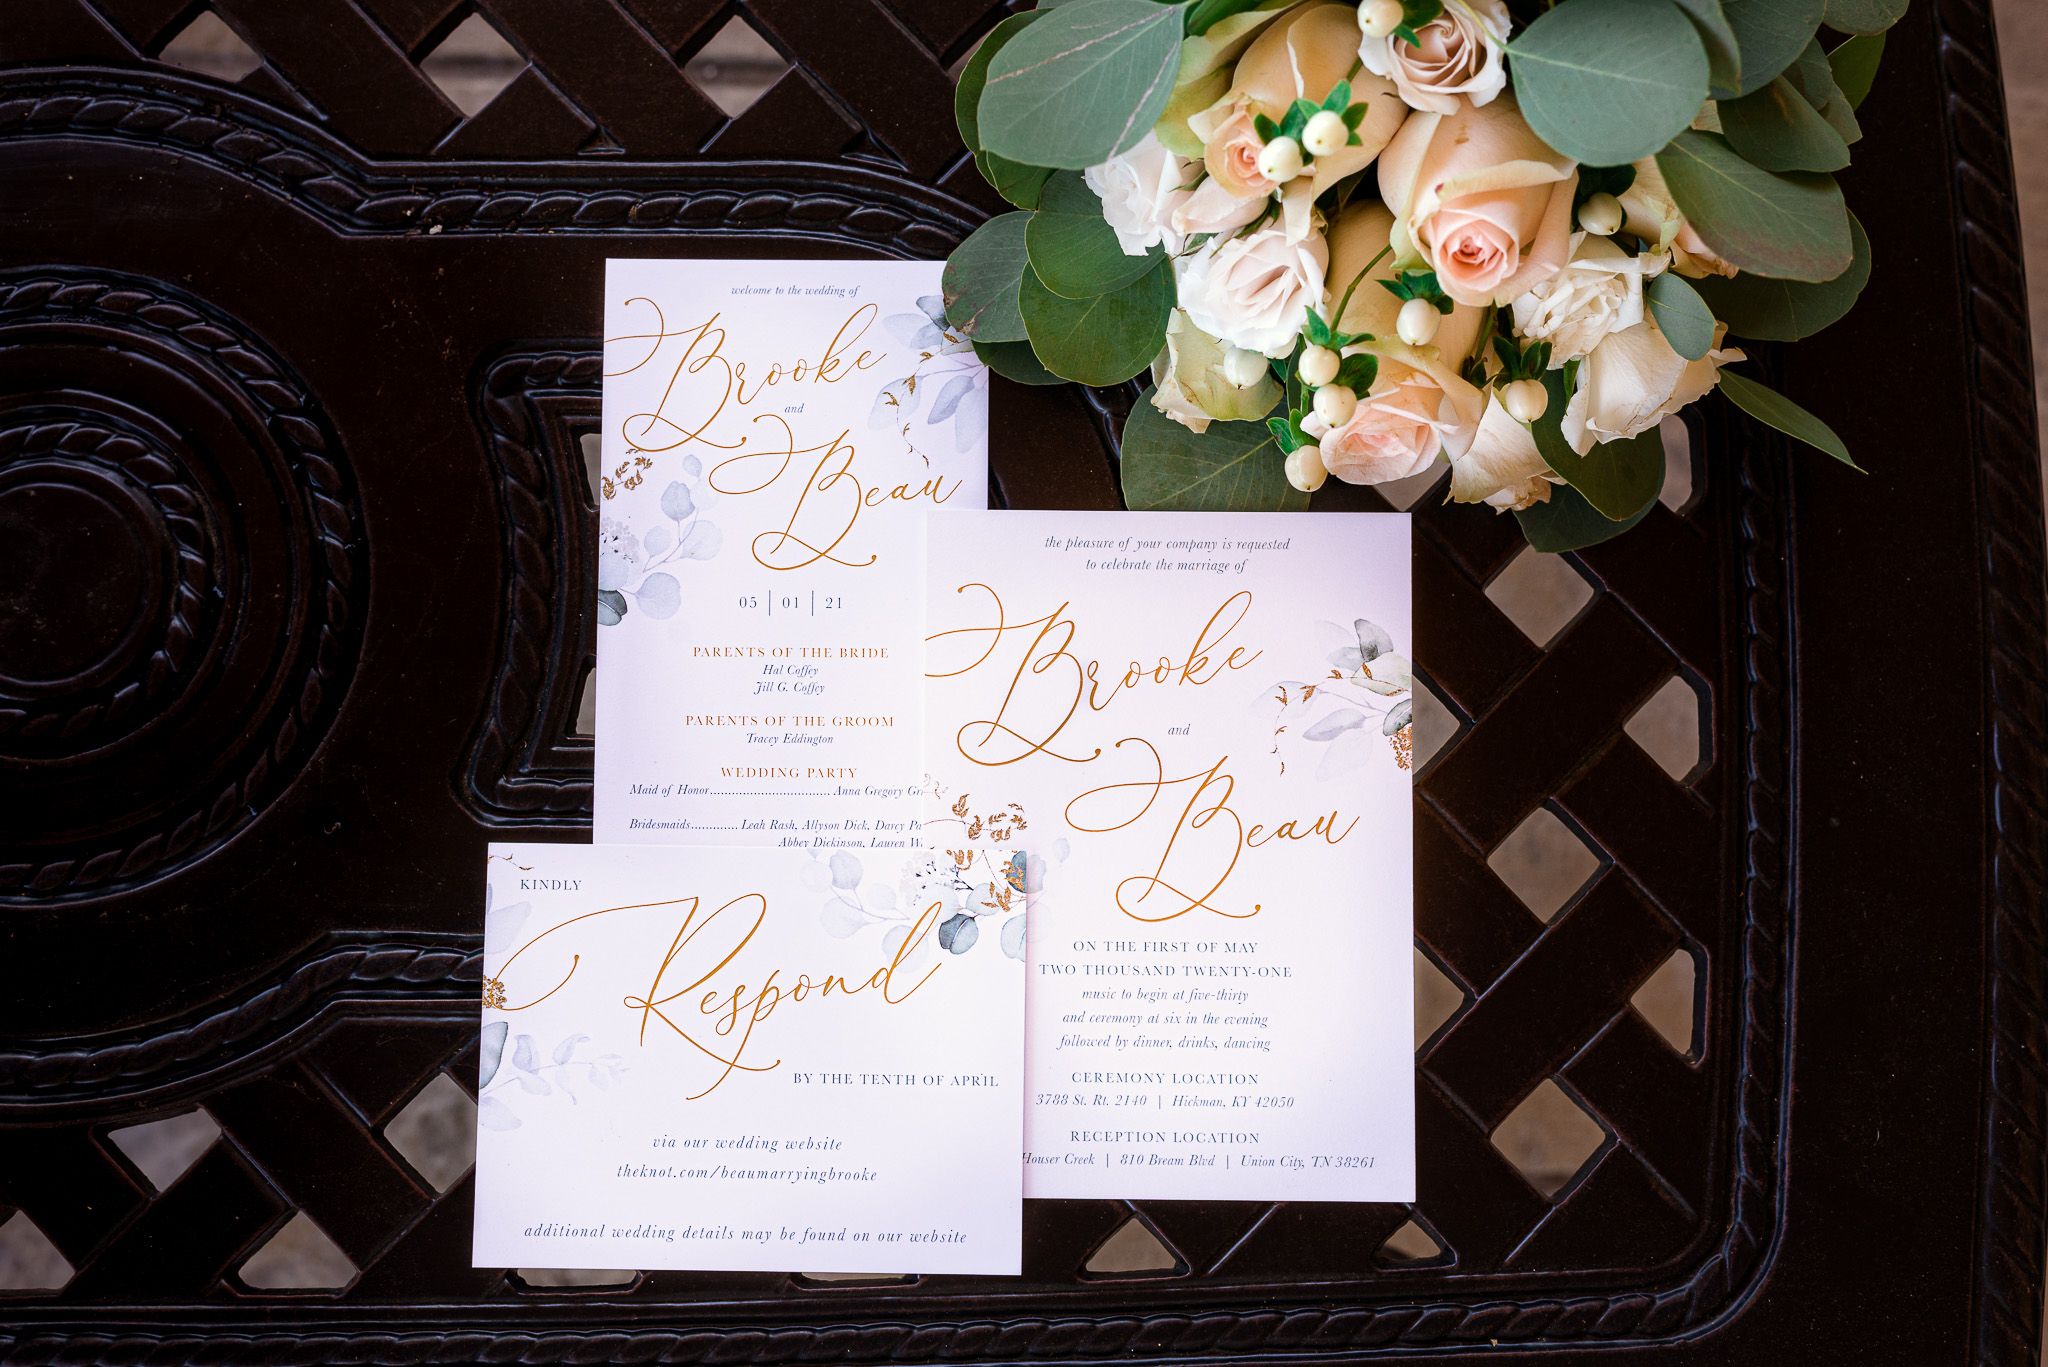 welcome to the wedding of
Brooke
and
Beau
05 | 01 | 21
PARENTS OF THE BRIDE
Hal Coffey
Jill G. Coffey
PARENTS OF THE GROOM
Tracey Eddington
WEDDING PARTY
Maid of Honor.................................. Anna Gregory
Bridesmaids............. Leah Rash, Allyson Dick, Darcy
Abbey Dickinson, Lauren
the pleasure of your company is requested
to celebrate the marriage of
Brooke
and
Beau
ON THE FIRST OF MAY
TWO THOUSAND TWENTY-ONE
music to begin at five-thirty
and ceremony at six in the evening
followed by dinner, drinks, dancing
CEREMONY LOCATION
3788 St. Rt. 2140 | Hickman, KY 42050
RECEPTION LOCATION
Houser Creek | 810 Bream Blvd | Union City, TN 38261
KINDLY
Respond
BY THE TENTH OF APRIL
via our wedding website
theknot.com/beaumarryingbrooke
additional wedding details may be found on our website